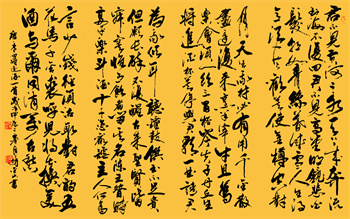 君不見黄河之水天上来奔流
到海不復回君不見高堂明鏡悲
白髮朝如青絲暮成雪人生得
意須盡歡莫使金樽空對
月天生我材必有用千金散
盡還復来烹羊宰牛且為
樂會須一飲三百杯岑夫子丹丘生
将進酒杯莫停與君歌一曲請君
為我傾耳聽鐘鼓饌玉不足貴
但願長醉不復醒古来聖賢皆
寂寞惟有飲者留其名陳王昔時宴
平樂斗酒十千恣歡謔主人何為
言少錢徑須沽取對君酌五
花馬千金裘呼兒将出換美
酒與爾同銷萬古愁